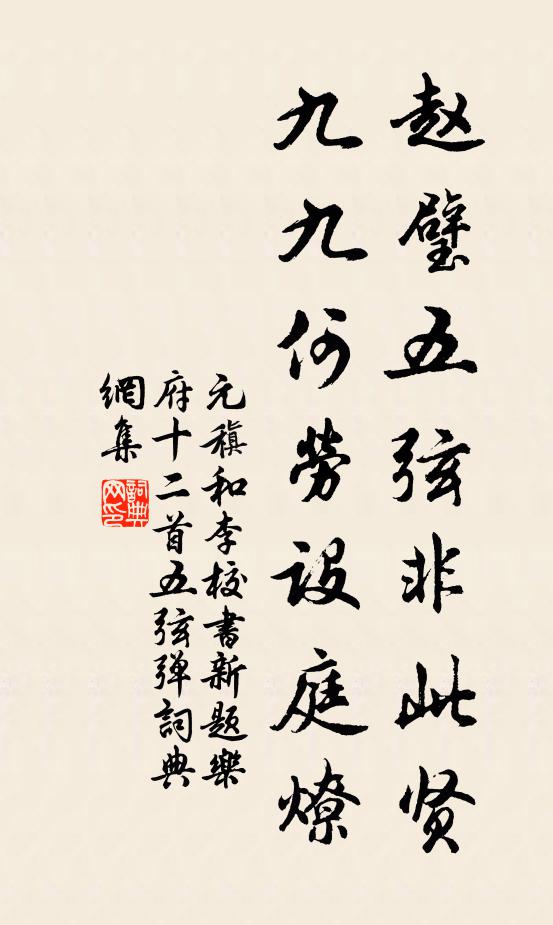 赵璧五弦非此贤
九九何劳設庭燎
元稹和李校書新题樂
府十二首五弦弹詞典
網集
詞典網印